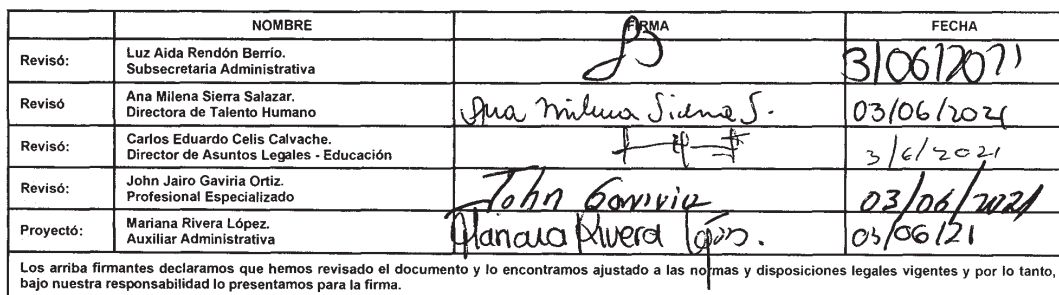 NOMBRE FIRMA FECHA
Revisó: Luz Aida Rendón Berrío.
Subsecretaria Administrativa
3/06/2021
Revisó Ana Milena Sierra Salazar.
Directora de Talento Humano
Ana Milena Sierra S. 03/06/2021
Revisó: Carlos Eduardo Celis Calvache.
Director de Asuntos Legales - Educación
3/6/2021
Revisó: John Jairo Gaviria Ortiz.
Profesional Especializado
John Gaviria 03/06/2021
Proyectó: Mariana Rivera López.
Auxiliar Administrativa
Mariana Rivera López. 03/06/21
Los arriba firmantes declaramos que hemos revisado el documento y lo encontramos ajustado a las normas y disposiciones legales vigentes y por lo tanto,
bajo nuestra responsabilidad lo presentamos para la firma.